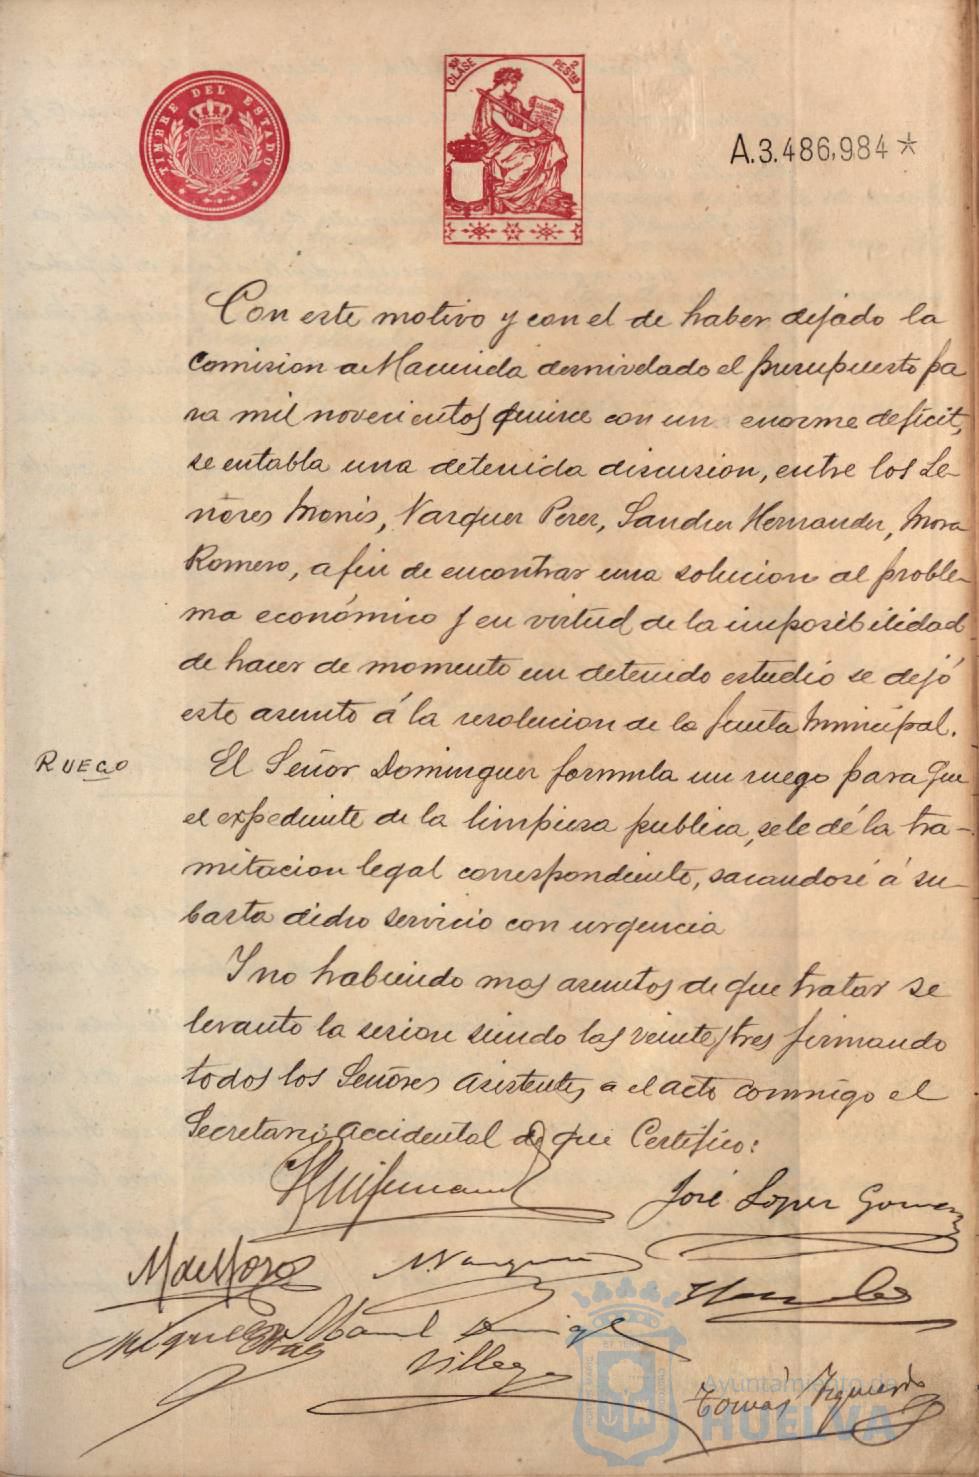 TIMBRE DEL ESTADO
CLASE
2 PESTAS
A.3.486,984*
Con este motivo y con el de haber dejado la
Comision de Hacienda desnivelado el presupuesto pa
ra mil novecientos quince con un enorme deficit,
se entabla una detenida discusion, entre los Se-
ñores Monis, Vazquez Perez, Sanchez Hernandez, Mora
Romero, a fin de encontrar una solucion al proble-
ma económico y en virtud de la imposibilidad
de hacer de momento un detenido estudio se dejó
este asunto á la resolucion de la Junta Municipal.
RUEGO
El Señor Dominguez formula un ruego para que
el expediente de la limpieza publica, se le dé la tra-
mitacion legal correspondiente, sacandose á su-
basta dicho servicio con urgencia
Y no habiendo mas asuntos de que tratar se
levanto la sesion siendo las veinte y tres firmando
todos los Señores Asistentes a el acto conmigo el
Secretario Accidental de que Certifico:
José Lopez Gomez
M de Mora
Villega
Tomás Izquierdo
Ayuntamiento de
HUELVA